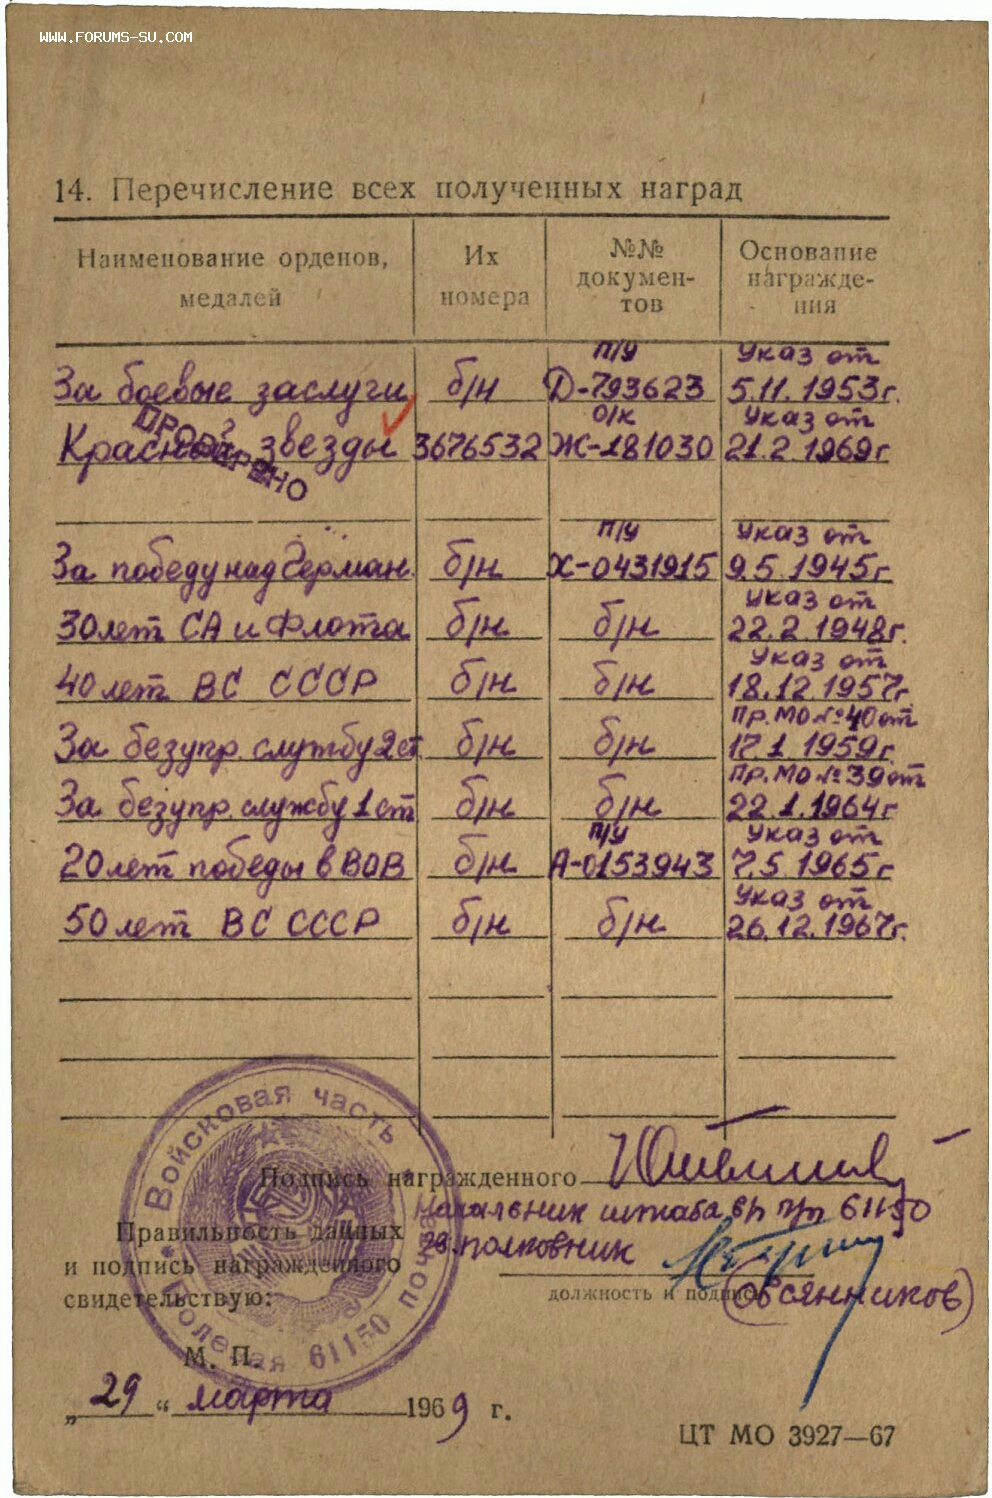 WWW.FORUMS-SU.COM
14. Перечисление всех полученных наград
Наименование орденов, медалей | Их номера | №№ документов | Основание награждения
За боевые заслуги | б/н | П/У Д-793623 | Указ от 5.11.1953г.
Красной звезды | 3676532 | О/К Ж-181030 | Указ от 21.2.1969г
ПРОВЕРЕНО
За победу над Герман. | б/н | П/У Х-0431915 | Указ от 9.5.1945г
30 лет СА и Флота | б/н | б/н | Указ от 22.2.1948г.
40 лет ВС СССР | б/н | б/н | Указ от 18.12.1957г
За безупр. службу 2 ст | б/н | б/н | Пр. МО № 40 от 17.1.1959г.
За безупр. службу 1 ст | б/н | б/н | Пр. МО № 39 от 22.1.1964г
20 лет победы в ВОВ | б/н | П/У А-0153943 | Указ от 7.5.1965г
50 лет ВС СССР | б/н | б/н | Указ от 26.12.1967г.
Войсковая часть
Полевая почта 61150
Подпись награжденного
Правильность данных
и подпись награжденного
свидетельствую:
Начальник штаба в/ч п/п 61150
полковник
должность и подпись
(Овсянников)
М. П.
„29“ марта 1969 г.
ЦТ МО 3927—67